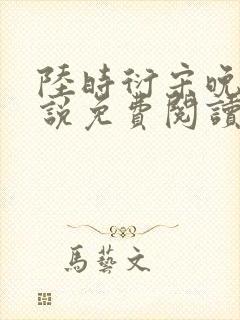 陸時衍宋晚
說免費閱讀
馬藝文